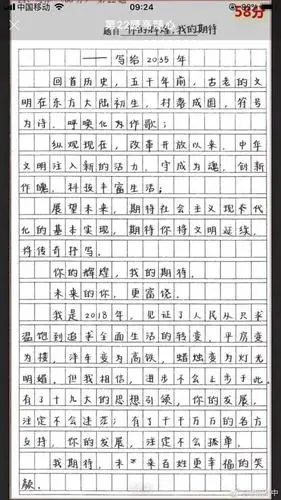 中国移动
09:24
第22题高疑心
58分
题目 你的辉煌,我的期待
——写给2035年
回首历史,五千年前,古老的文
明在东方大陆初生,村落成图,符号
为诗,呼唤化为作歌;
纵观现在,改革开放以来,中华
文明注入新的活力,守成为魂,创新
作魄,科技丰富生活;
展望未来,期待社会主义现代
化的基本实现,期待你将文明延续,
将传奇抒写。
你的辉煌,我的期待。
未来的你,更富饶。
我是2018年,见证了人民从只求
温饱到追求全面生活的转变。平房变
为楼,汽车变为高铁,蜡烛变为灯光
明媚。但我相信,进步不会止步于此。
有了十九大的思想引领,你的发展,
注定不会迷茫;有了千千万万的各方
支持,你的发展,注定不会孤单。
我期待,未来百姓更幸福的笑
颜。